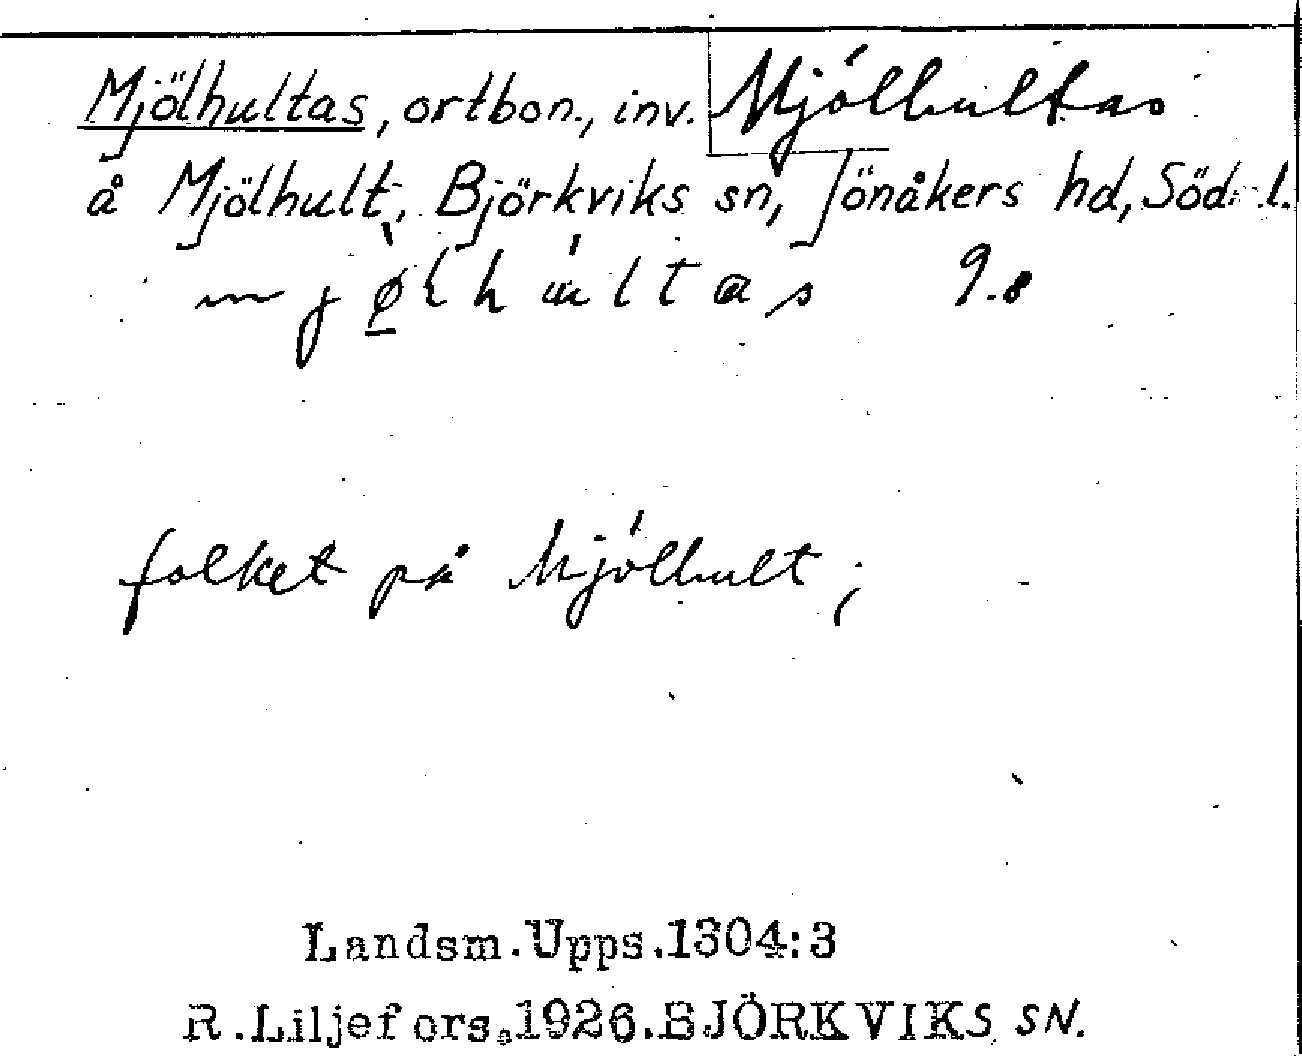 Mjölhultas, ortbon., inv. Mjölhultas
å Mjölhult, Björkviks sn, Jönåkers hd, Söd. l.
folket på Mjölhult;
Landsm.Upps.1304:3
R.Liljefors.1926.BJÖRKVIKS SN.